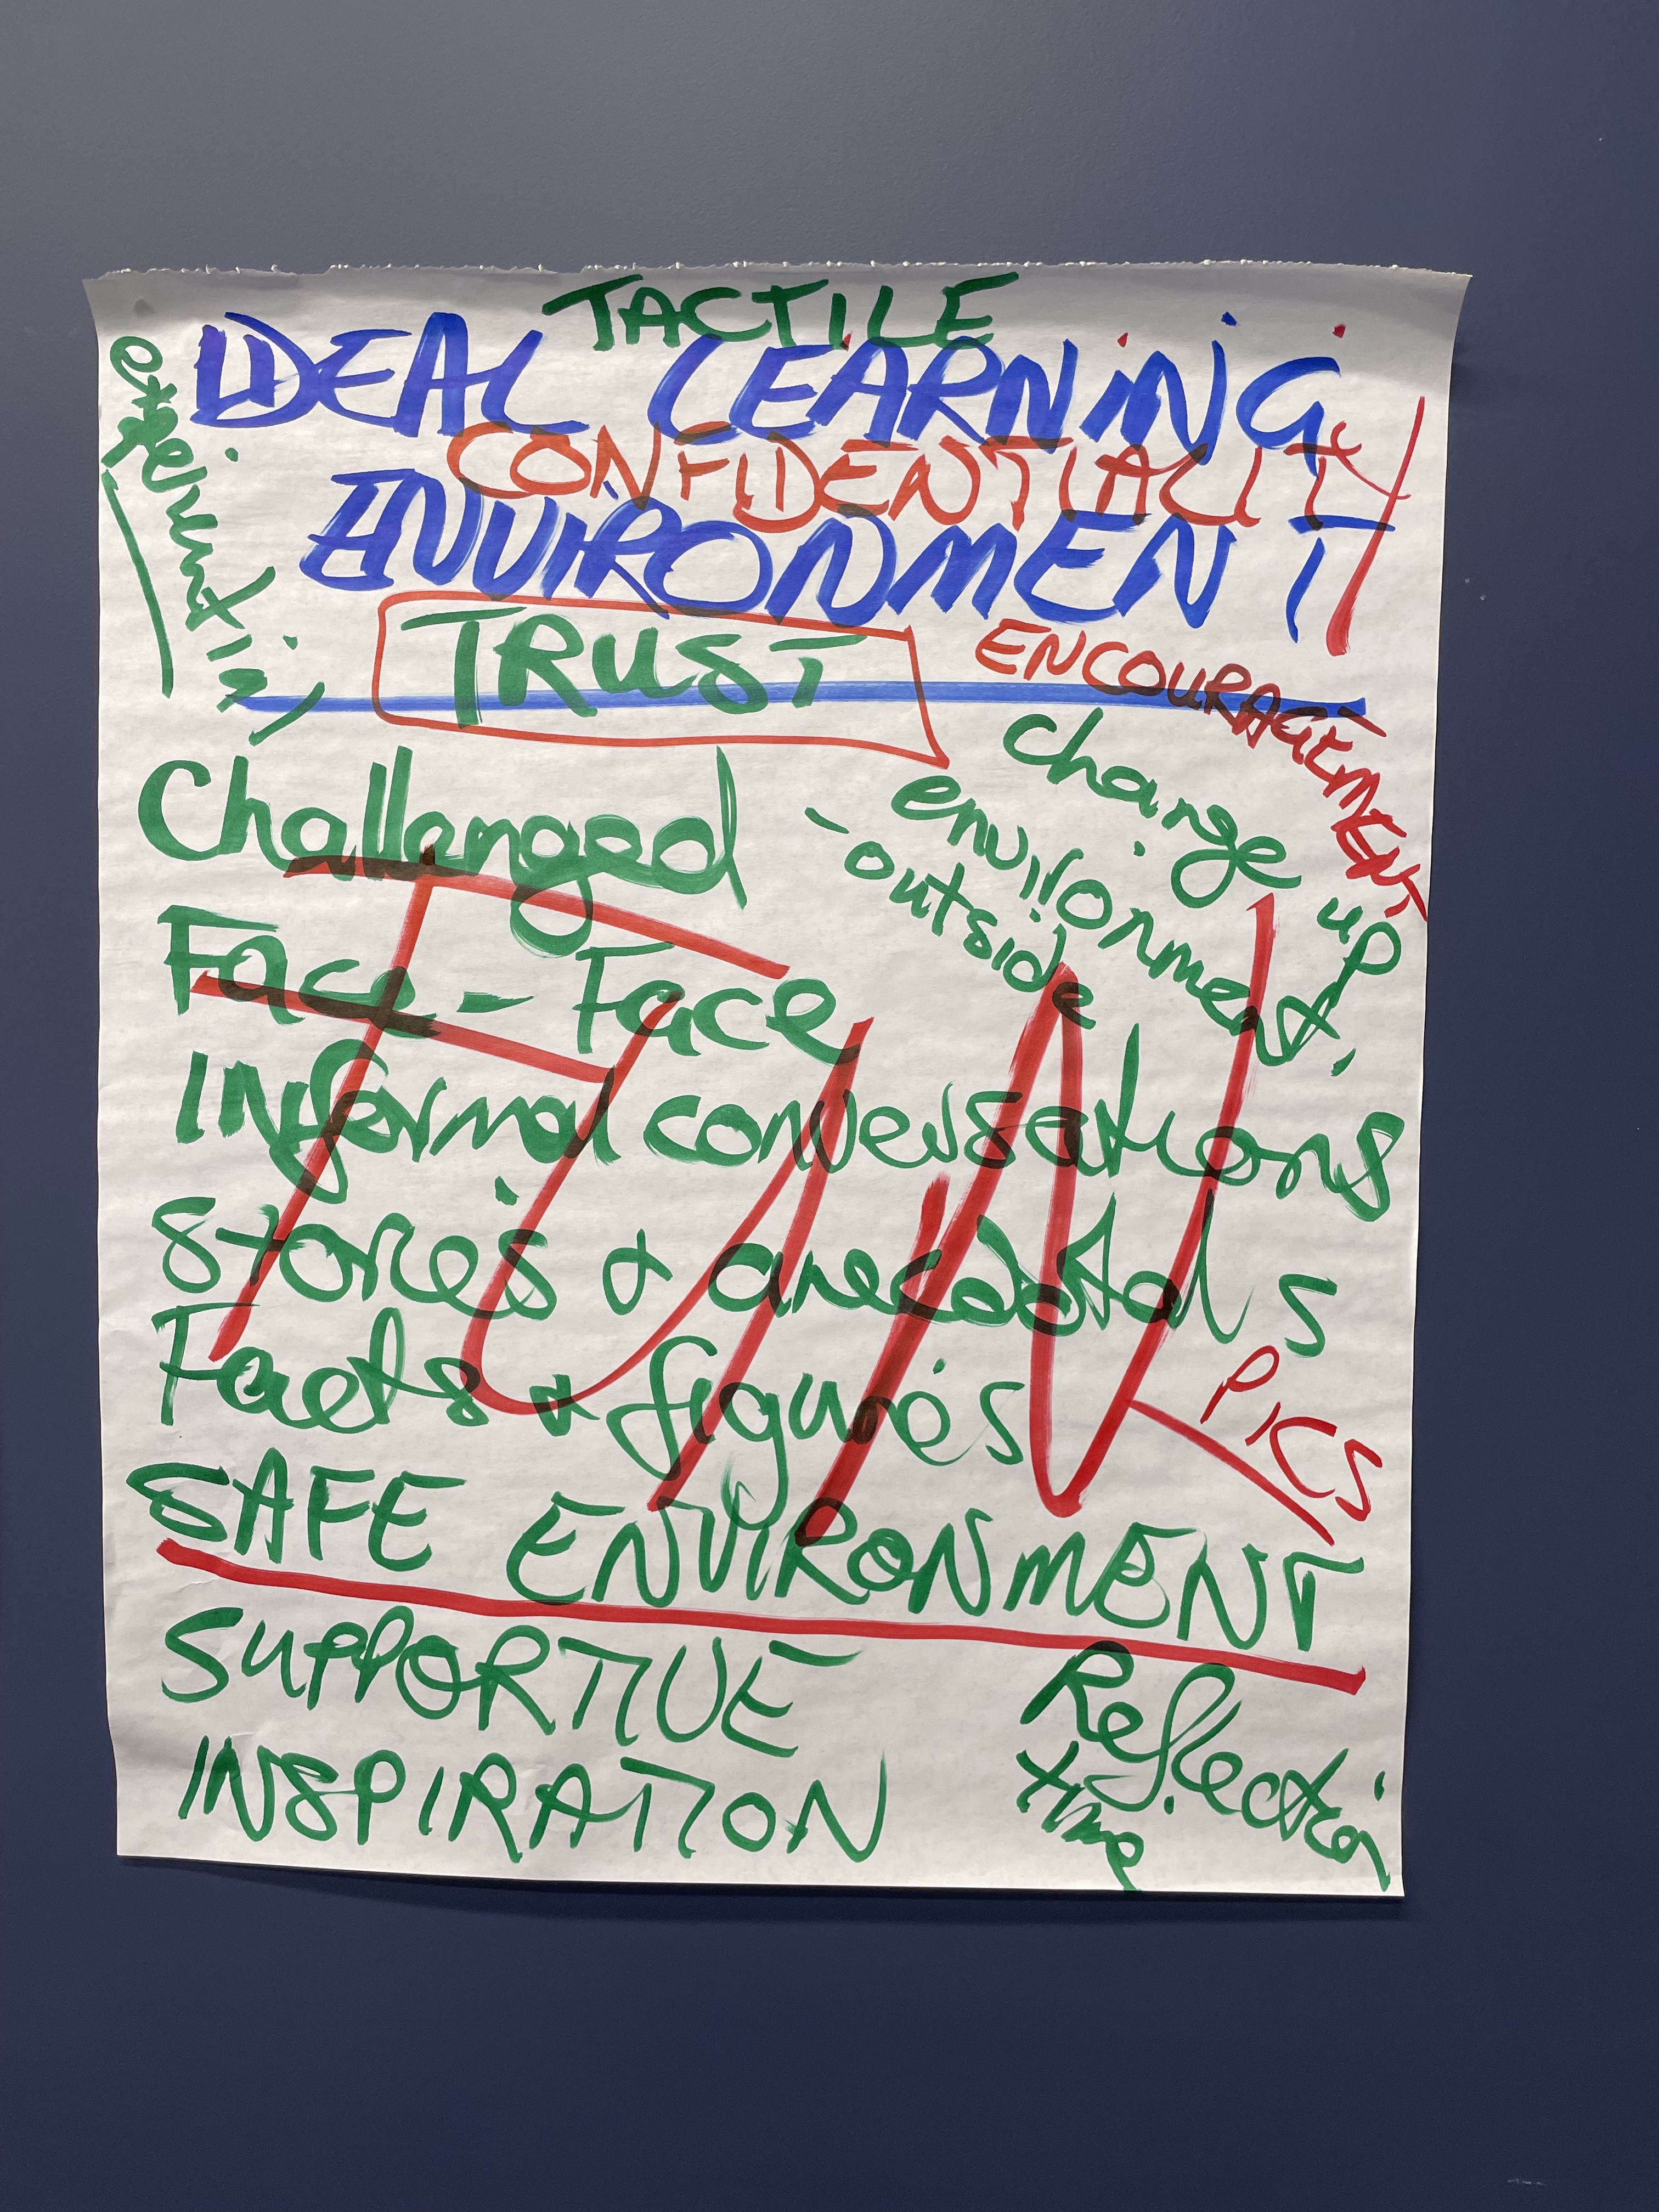 TACTILE
IDEAL LEARNING
CONFIDENTIALITY
ENVIRONMENT
TRUST
ENCOURAGEMENT
Challanged
change up
environment.
- outside
Face - Face
Informal conversations
stories & anecdotals
Facts & figures
FUN
PICS
SAFE ENVIRONMENT
SUPPORTIVE
INSPIRATION
Reflection
time